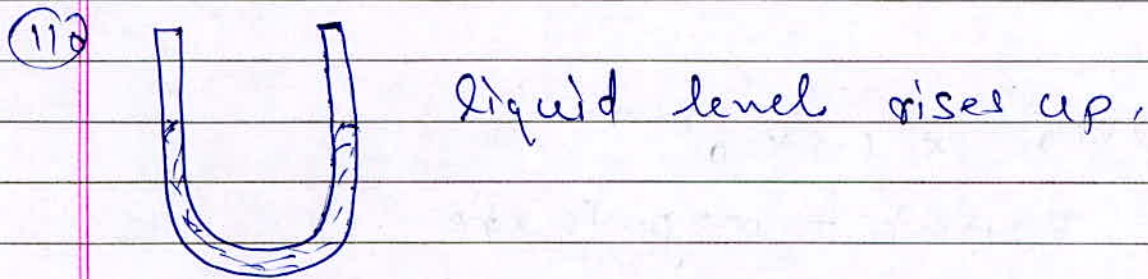 112
liquid level rises up.